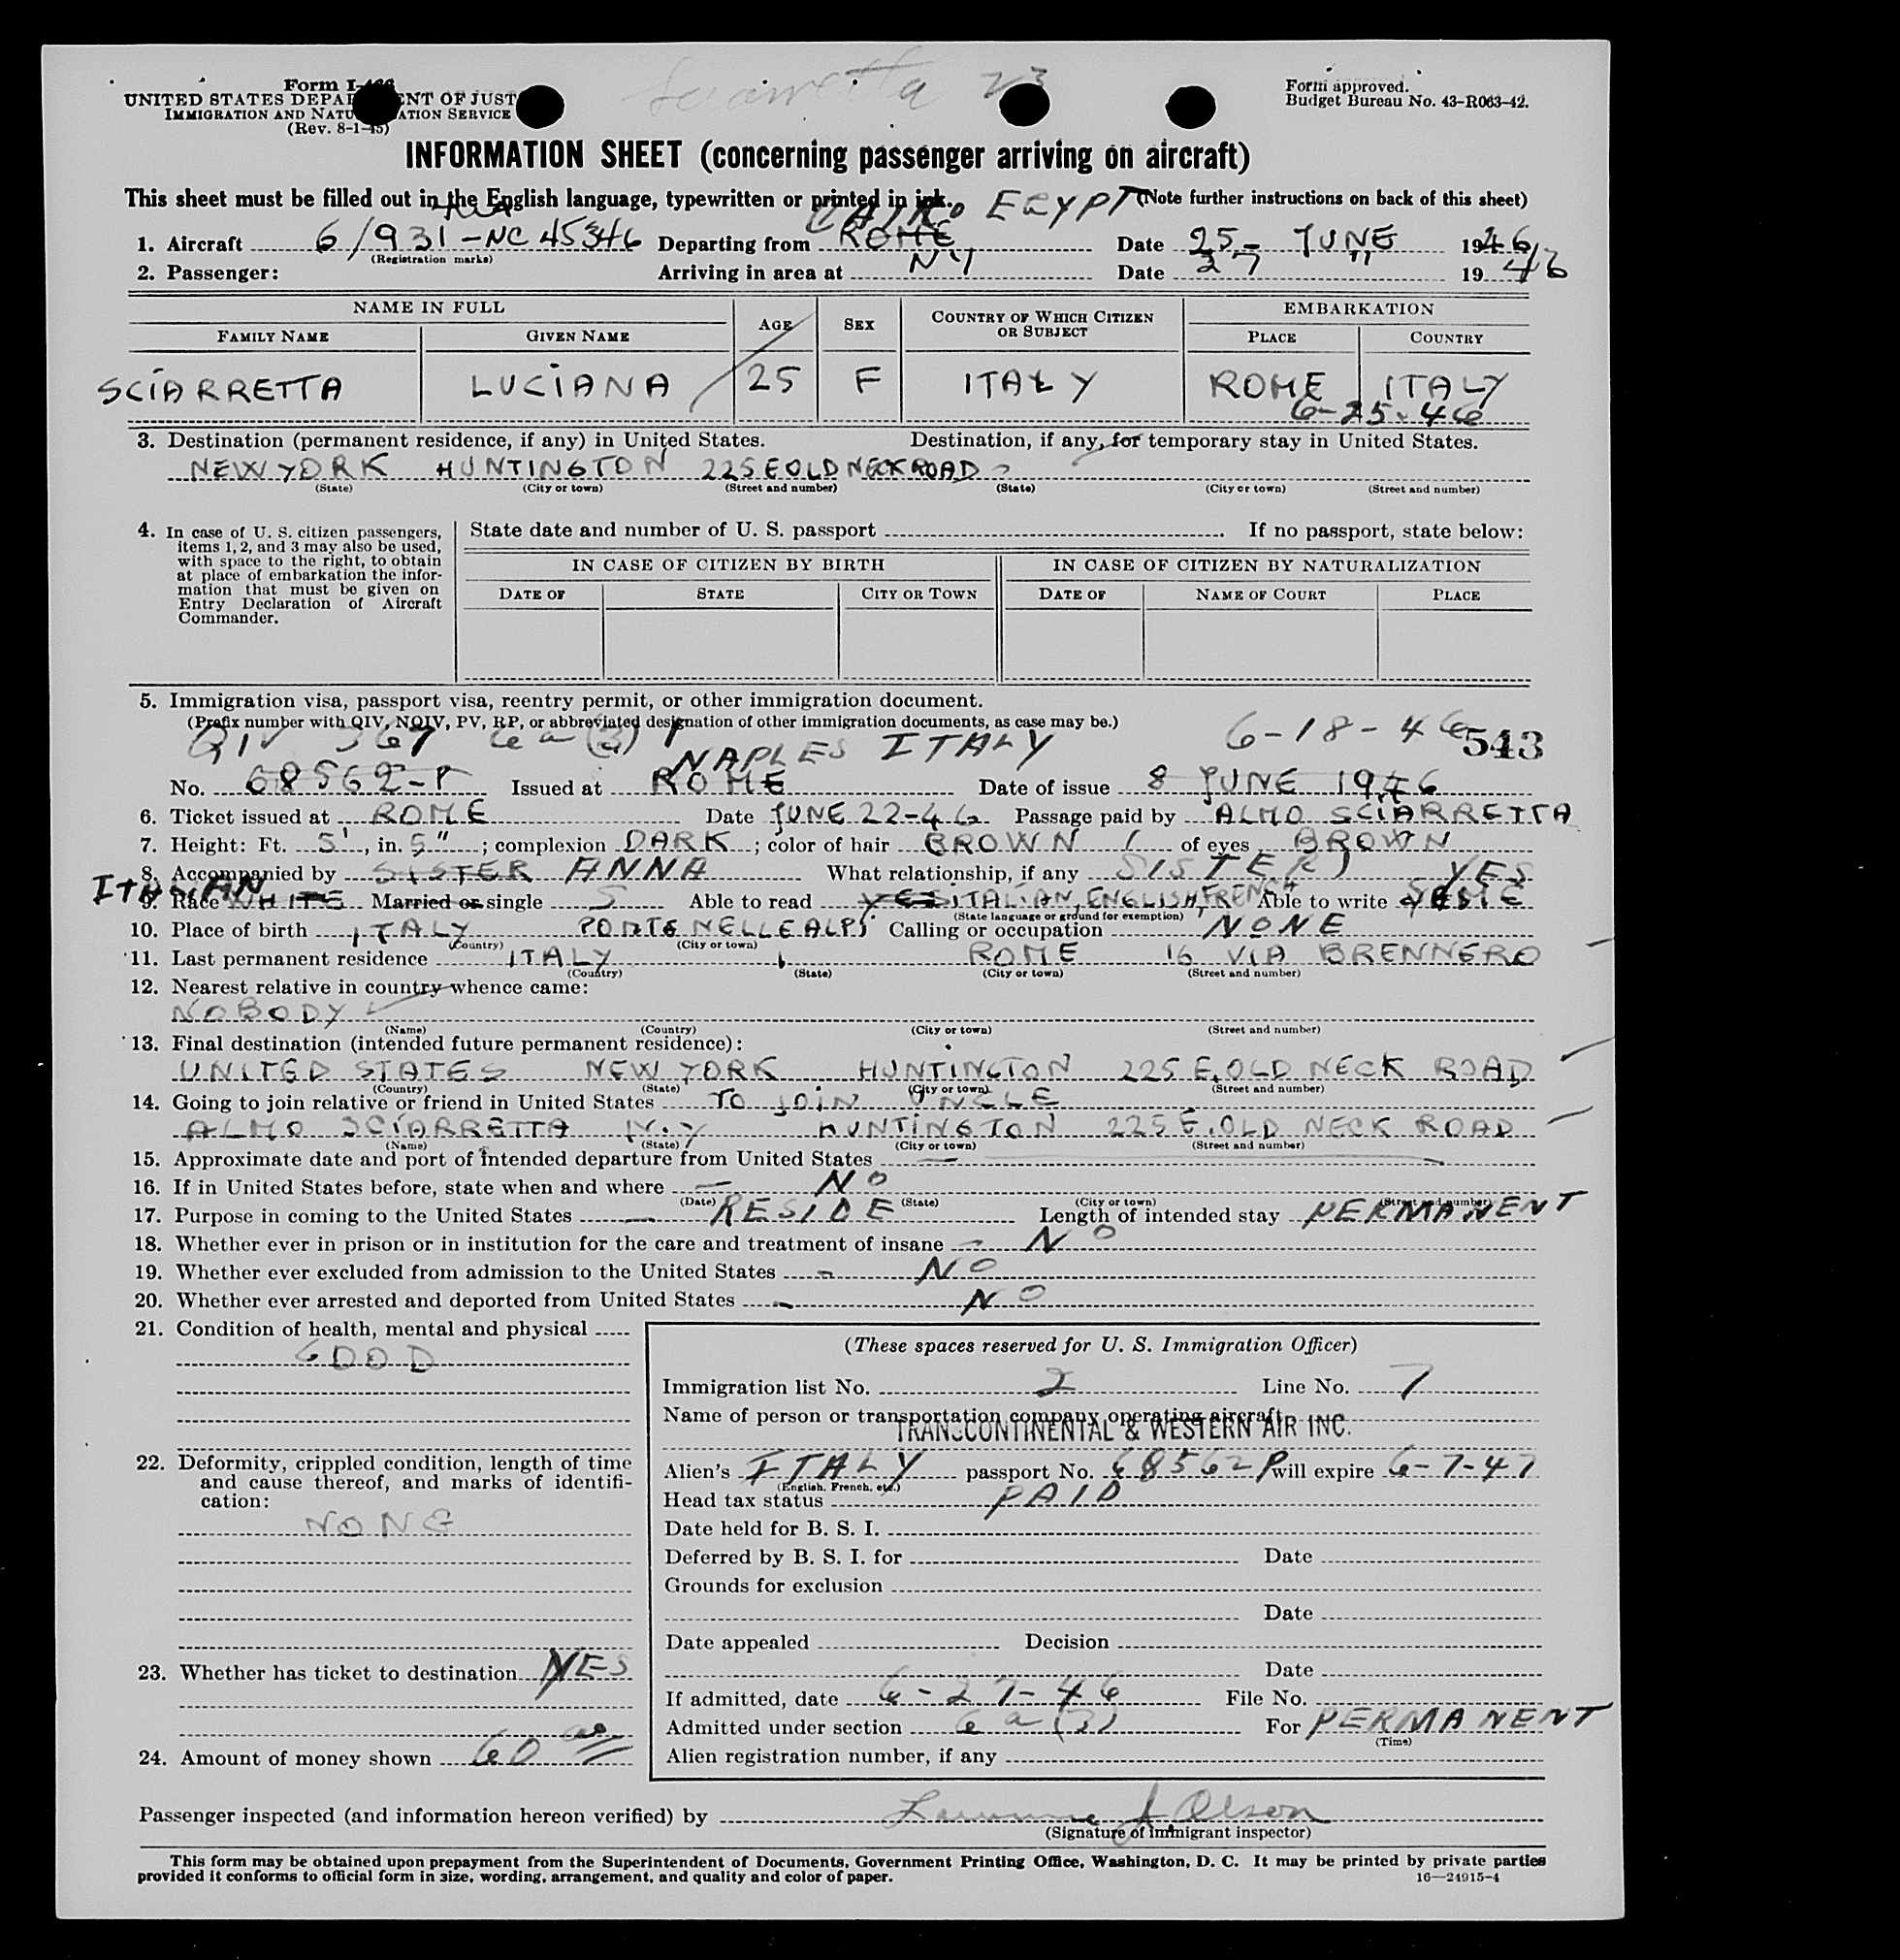 Sciarretta 23
Form I-466
UNITED STATES DEPARTMENT OF JUSTICE
IMMIGRATION AND NATURALIZATION SERVICE
(Rev. 8-1-45)
Form approved.
Budget Bureau No. 43-R063-42.
INFORMATION SHEET (concerning passenger arriving on aircraft)
This sheet must be filled out in the English language, typewritten or printed in ink. (Note further instructions on back of this sheet)
TWA CAIRO EGYPT
1. Aircraft 6/931-NC45346 Departing from ROME Date 25- JUNE 1946
(Registration marks)
2. Passenger: Arriving in area at NY Date 27 " 1946
NAME IN FULL AGE SEX COUNTRY OF WHICH CITIZEN OR SUBJECT EMBARKATION
FAMILY NAME GIVEN NAME PLACE COUNTRY
SCIARRETTA LUCIANA 25 F ITALY ROME ITALY
6-25-46
3. Destination (permanent residence, if any) in United States. Destination, if any, for temporary stay in United States.
NEW YORK HUNTINGTON 225 E OLD NECK ROAD
(State) (City or town) (Street and number) (State) (City or town) (Street and number)
4. In case of U. S. citizen passengers, items 1, 2, and 3 may also be used, with space to the right, to obtain at place of embarkation the information that must be given on Entry Declaration of Aircraft Commander.
State date and number of U. S. passport If no passport, state below:
IN CASE OF CITIZEN BY BIRTH IN CASE OF CITIZEN BY NATURALIZATION
DATE OF STATE CITY OR TOWN DATE OF NAME OF COURT PLACE
5. Immigration visa, passport visa, reentry permit, or other immigration document.
(Prefix number with QIV, NQIV, PV, RP, or abbreviated designation of other immigration documents, as case may be.)
QIV 367 6a(3) NAPLES ITALY 6-18-46 543
No. 68562-P Issued at ROME Date of issue 8 JUNE 1946
6. Ticket issued at ROME Date JUNE 22-46 Passage paid by ALMO SCIARRETTA
7. Height: Ft. 5', in. 5" ; complexion DARK ; color of hair BROWN of eyes BROWN
8. Accompanied by SISTER ANNA What relationship, if any SISTER YES
ITALIAN
9. Race WHITE Married or single S Able to read YES ITALIAN, ENGLISH, FRENCH Able to write SAME
(State language or ground for exemption)
10. Place of birth ITALY PONTE NELLE ALPI Calling or occupation NONE
(Country) (City or town)
11. Last permanent residence ITALY ROME 16 VIA BRENNERO
(Country) (State) (City or town) (Street and number)
12. Nearest relative in country whence came:
NOBODY
(Name) (Country) (City or town) (Street and number)
13. Final destination (intended future permanent residence):
UNITED STATES NEW YORK HUNTINGTON 225 E. OLD NECK ROAD
(Country) (State) (City or town) (Street and number)
14. Going to join relative or friend in United States TO JOIN UNCLE
ALMO SCIARRETTA N.Y HUNTINGTON 225 E. OLD NECK ROAD
(Name) (State) (City or town) (Street and number)
15. Approximate date and port of intended departure from United States —
16. If in United States before, state when and where — NO
(Date) (State) (City or town) (Street and number)
17. Purpose in coming to the United States — RESIDE Length of intended stay PERMANENT
18. Whether ever in prison or in institution for the care and treatment of insane — NO
19. Whether ever excluded from admission to the United States — NO
20. Whether ever arrested and deported from United States — NO
21. Condition of health, mental and physical
GOOD
22. Deformity, crippled condition, length of time and cause thereof, and marks of identification:
NONE
23. Whether has ticket to destination YES
24. Amount of money shown 60 00
(These spaces reserved for U. S. Immigration Officer)
Immigration list No. 2 Line No. 7
Name of person or transportation company operating aircraft
TRANSCONTINENTAL & WESTERN AIR INC.
Alien's ITALY passport No. 68562P will expire 6-7-47
(English, French, etc.)
Head tax status PAID
Date held for B. S. I.
Deferred by B. S. I. for Date
Grounds for exclusion
Date
Date appealed Decision
Date
If admitted, date 6-27-46 File No.
Admitted under section 6a(3) For PERMANENT
(Time)
Alien registration number, if any
Passenger inspected (and information hereon verified) by Lawrence A. Olson
(Signature of immigrant inspector)
This form may be obtained upon prepayment from the Superintendent of Documents, Government Printing Office, Washington, D. C. It may be printed by private parties
provided it conforms to official form in size, wording, arrangement, and quality and color of paper. 16—24915-4